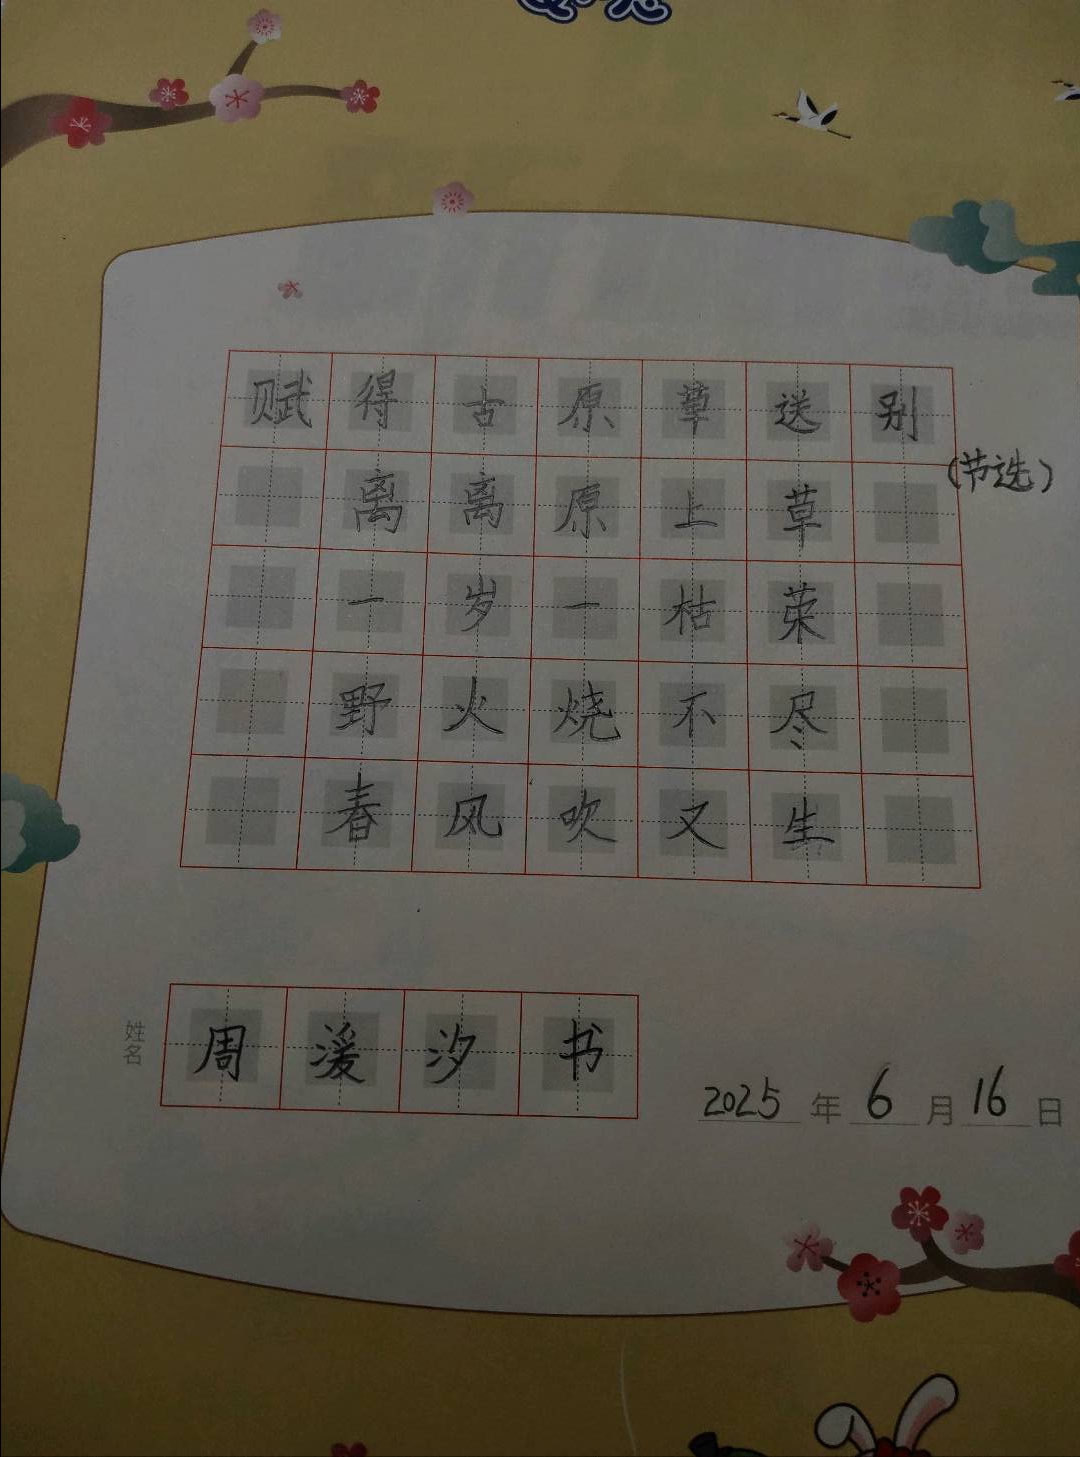 赋得古原草送别
(节选)
离离原上草
一岁一枯荣
野火烧不尽
春风吹又生
姓名
周湲汐书
2025年6月16日